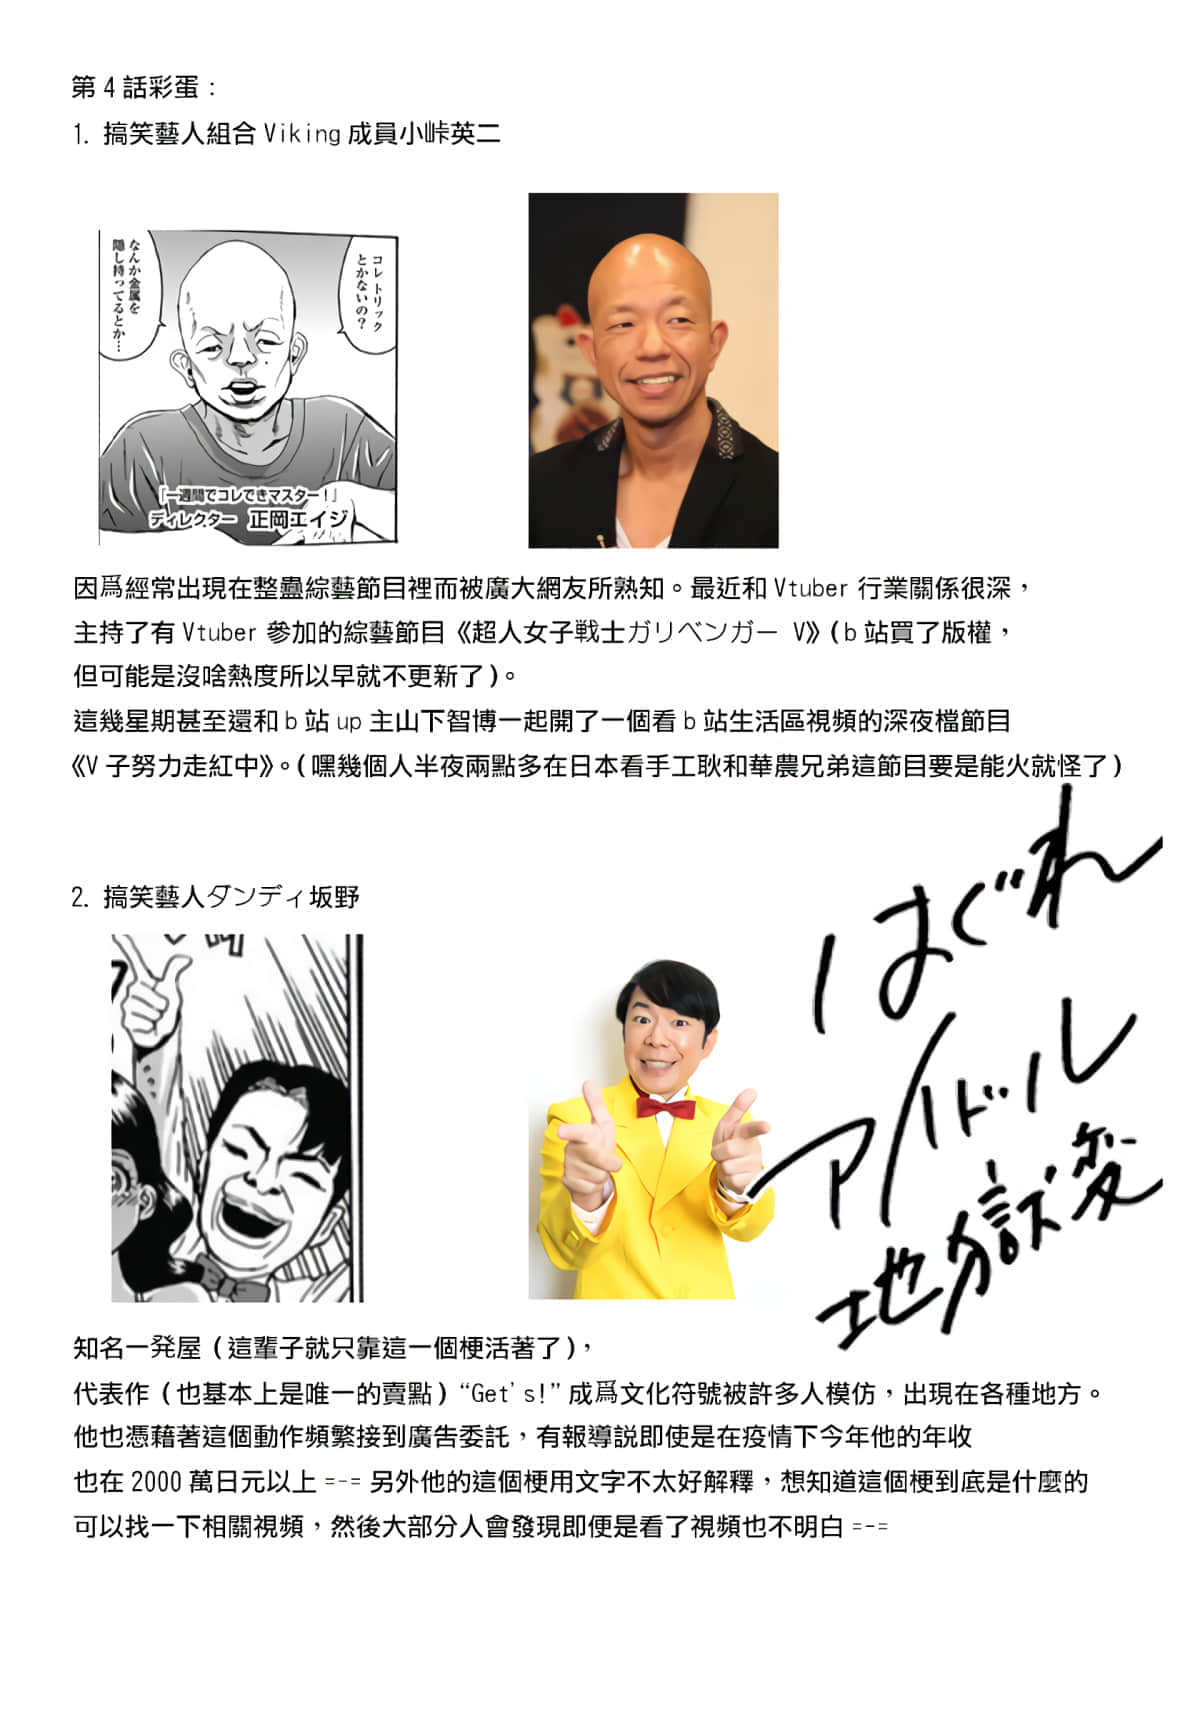 第4話彩蛋：
1. 搞笑藝人組合Viking成員小峠英二
コレトリック
とかないの？
なんか金属を
隠し持ってるとか…
『一週間でコレできマスター！』
ディレクター 正岡エイジ
因爲經常出現在整蠱綜藝節目裡而被廣大網友所熟知。最近和Vtuber行業關係很深，
主持了有Vtuber參加的綜藝節目《超人女子戦士ガリベンガー V》(b站買了版權，
但可能是沒啥熱度所以早就不更新了)。
這幾星期甚至還和b站up主山下智博一起開了一個看b站生活區視頻的深夜檔節目
《V子努力走紅中》。(嘿幾個人半夜兩點多在日本看手工耿和華農兄弟這節目要是能火就怪了)
2. 搞笑藝人ダンディ坂野
はぐれ
アイドル
地獄変
知名一発屋(這輩子就只靠這一個梗活著了)，
代表作(也基本上是唯一的賣點)“Get's!”成爲文化符號被許多人模仿，出現在各種地方。
他也憑藉著這個動作頻繁接到廣告委託，有報導説即使是在疫情下今年他的年收
也在2000萬日元以上=-=另外他的這個梗用文字不太好解釋，想知道這個梗到底是什麼的
可以找一下相關視頻，然後大部分人會發現即便是看了視頻也不明白=-=